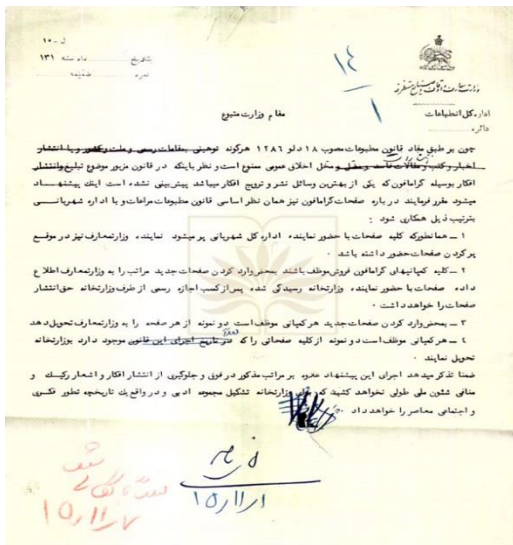 ل - ۱۰
بتاریخ ماه سنه ۱۳۱
نمره ضمیمه
۱۴
۱
وزارت معارف و اوقاف و صنایع مستظرفه
اداره کل انطباعات
دائره
مقام وزارت متبوع
چون بر طبق مفاد قانون مطبوعات مصوب ۱۸ دلو ۱۲۸۶ هرگونه توهینی بمقامات رسمی و ملت و کشور و یا انتشار
اخبار و کتب و مقالات فاسد و مضل و مخل اخلاق عمومی ممنوع است و نظر باینکه در قانون مزبور موضوع تبلیغ و انتشار
افکار بوسیله گرامافون که یکی از بهترین وسائل نشر و ترویج افکار میباشد پیش بینی نشده است اینک پیشنهاد
میشود مقرر فرمایند در باره صفحات گرامافون نیز همان نظر اساسی قانون مطبوعات مراعات و با اداره شهربانی
بترتیب ذیل همکاری شود :
۱ ـ همانطور که کلیه صفحات با حضور نماینده اداره کل شهربانی پر میشود نماینده وزارت معارف نیز در موقع
پر کردن صفحات حضور داشته باشد ۰
۲ ـ کلیه کمپانیهای گرامافون فروش موظف باشند بمحض وارد کردن صفحات جدید مراتب را به وزارت معارف اطلاع
داده صفحات با حضور نماینده وزارتخانه رسیدگی شده پس از کسب اجازه رسمی از طرف وزارتخانه حق انتشار
صفحات را خواهد داشت ۰
۳ ـ بمحض وارد کردن صفحات جدید هر کمپانی موظف است دو نمونه از هر صفحه را به وزارت معارف تحویل دهد
۴ ـ هر کمپانی موظف است دو نمونه از کلیه صفحاتی را که در تاریخ اجرای این قانون موجود دارد بوزارتخانه
تحویل نمایند ۰
ضمنا تذکر میدهد اجرای این پیشنهاد علاوه بر مراتب مذکور در فوق و جلوگیری از انتشار افکار و اشعار رکیک و
منافی شئون ملی طولی نخواهد کشید که برای وزارتخانه تشکیل مجموعه ادبی و در واقع یک تاریخچه تطور فکری
و اجتماعی معاصر را خواهد داد ۰